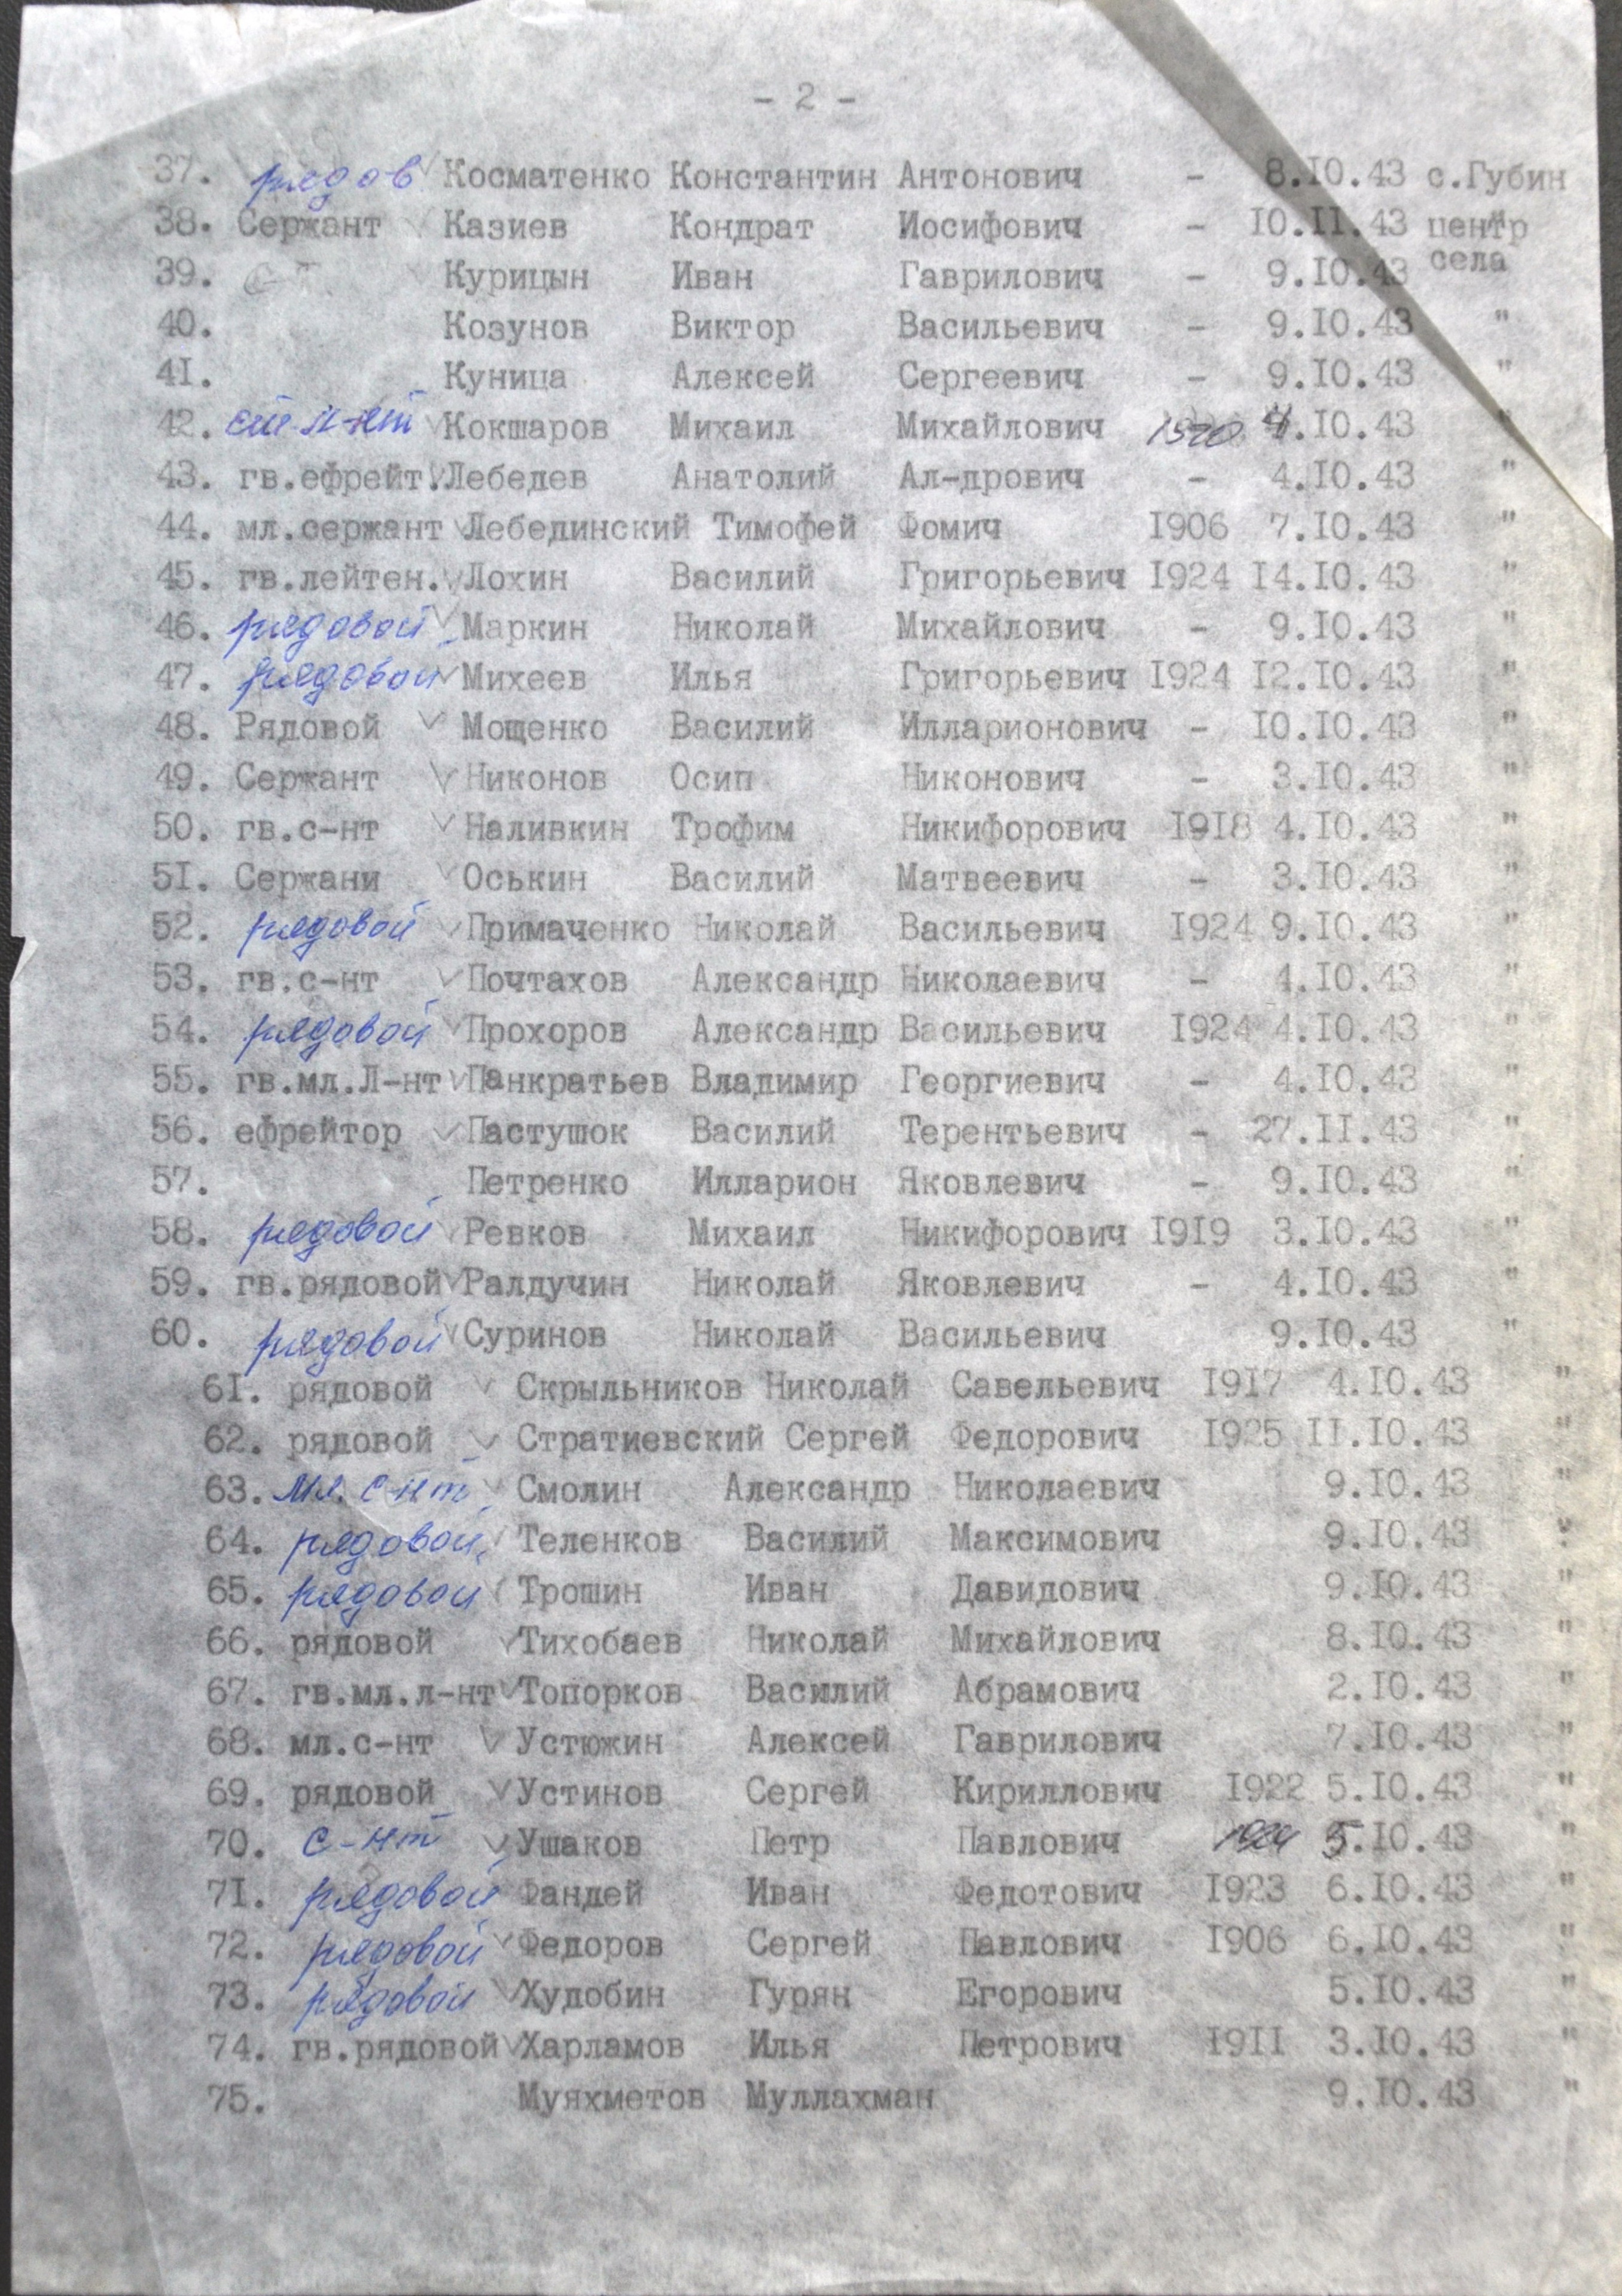 - 2 -
37. рядов Косматенко Константин Антонович - 8.10.43 с.Губин
38. Сержант Казиев Кондрат Иосифович - 10.11.43 центр
села
39. Курицын Иван Гаврилович - 9.10.43
40. Козунов Виктор Васильевич - 9.10.43 "
41. Куница Алексей Сергеевич - 9.10.43 "
42. ст. л-нт Кокшаров Михаил Михайлович 4.10.43 "
43. гв.ефрейт. Лебедев Анатолий Ал-дрович - 4.10.43 "
44. мл.сержант Лебединский Тимофей Фомич 1906 7.10.43 "
45. гв.лейтен. Лохин Василий Григорьевич 1924 14.10.43 "
46. рядовой Маркин Николай Михайлович - 9.10.43 "
47. рядовой Михеев Илья Григорьевич 1924 12.10.43 "
48. Рядовой Мощенко Василий Илларионович - 10.10.43 "
49. Сержант Никонов Осип Никонович - 3.10.43 "
50. гв.с-нт Наливкин Трофим Никифорович 1918 4.10.43 "
51. Сержани Оськин Василий Матвеевич - 3.10.43 "
52. рядовой Примаченко Николай Васильевич 1924 9.10.43 "
53. гв.с-нт Почтахов Александр Николаевич - 4.10.43 "
54. рядовой Прохоров Александр Васильевич 1924 4.10.43 "
55. гв.мл.Л-нт Панкратьев Владимир Георгиевич - 4.10.43 "
56. ефрейтор Пастушок Василий Терентьевич - 27.11.43 "
57. Петренко Илларион Яковлевич - 9.10.43 "
58. рядовой Ревков Михаил Никифорович 1919 3.10.43 "
59. гв.рядовой Ралдучин Николай Яковлевич - 4.10.43 "
60. рядовой Суринов Николай Васильевич 9.10.43 "
61. рядовой Скрыльников Николай Савельевич 1917 4.10.43 "
62. рядовой Стратиевский Сергей Федорович 1925 11.10.43 "
63. Мл. с-нт Смолин Александр Николаевич 9.10.43 "
64. рядовой Теленков Василий Максимович 9.10.43 "
65. рядовой Трошин Иван Давидович 9.10.43 "
66. рядовой Тихобаев Николай Михайлович 8.10.43 "
67. гв.мл.л-нт Топорков Василий Абрамович 2.10.43 "
68. мл.с-нт Устюжин Алексей Гаврилович 7.10.43 "
69. рядовой Устинов Сергей Кириллович 1922 5.10.43 "
70. с-нт Ушаков Петр Павлович 1924 5.10.43 "
71. рядовой Фандей Иван Федотович 1923 6.10.43 "
72. рядовой Федоров Сергей Павлович 1906 6.10.43 "
73. рядовой Худобин Гурян Егорович 5.10.43 "
74. гв.рядовой Харламов Илья Петрович 1911 3.10.43 "
75. Муяхметов Муллахман 9.10.43 "